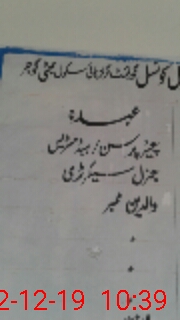 کونسل گورنمنٹ گرلز ہائی سکول بھٹی گوجر
عہدہ
چیئر پرسن / ہیڈ مسٹریس
جنرل سیکرٹری
والدین ممبر
2-12-19 10:39